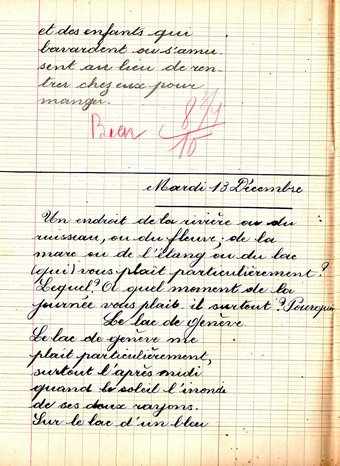 et des enfants qui
bavardent ou s'amu-
sent au lieu de ren-
trer chez eux pour
manger.
Bien 8 3/4
10
Mardi 13 Décembre
Un endroit de la rivière ou du
ruisseau, ou du fleuve; de la
mare ou de l'étang ou du lac
(qui) vous plait particulièrement?
Lequel? A quel moment de la
journée vous plait-il surtout? Pourquoi
Le lac de Genève
Le lac de genève me
plait particulièrement,
surtout l'après midi
quand le soleil l'inonde
de ses doux rayons.
Sur le lac d'un bleu